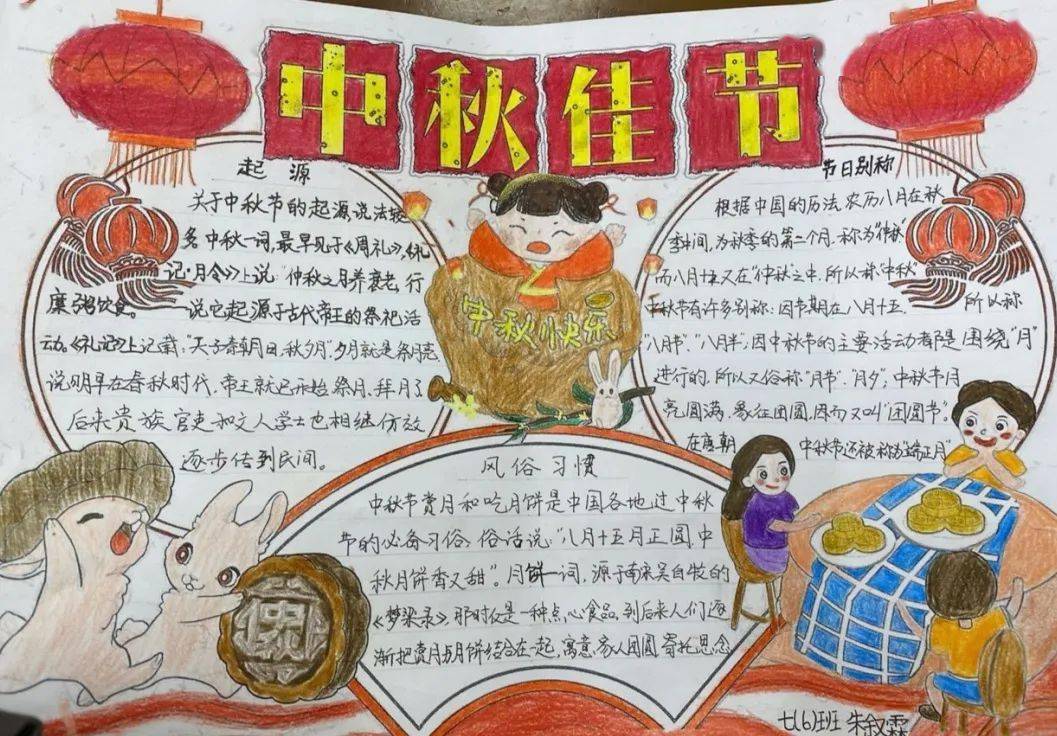 中秋佳节
起源
关于中秋节的起源,说法较
多,中秋一词,最早见于《周礼》,《礼
记·月令》上说:“仲秋之月养衰老,行
糜粥饮食。一说它起源于古代帝王的祭祀活
动。《礼记》上记载:“天子春朝日,秋夕月”,夕月就是祭月亮
说明早在春秋时代,帝王就已开始祭月、拜月了
后来贵族官吏和文人学士也相继仿效
逐步传到民间。
中秋快乐
节日别称
根据中国的历法,农历八月在秋
季中间,为秋季的第二个月,称为“仲秋”
而八月十五又在“仲秋”之中,所以称“中秋”
中秋节有许多别称:因节期在八月十五,所以称
“八月节”、“八月半”;因中秋节的主要活动都是围绕“月”
进行的,所以又俗称“月节”、“月夕”;中秋节月
亮圆满,象征团圆,因而又叫“团圆节”。
在唐朝 中秋节还被称为“端正月”
风俗习惯
中秋节赏月和吃月饼是中国各地过中秋
节的必备习俗,俗话说:“八月十五月正圆,中
秋月饼香又甜”。月饼一词,源于南宋吴自牧的
《梦梁录》那时仅是一种点心食品,到后来人们逐
渐把赏月与月饼结合在一起,寓意家人团圆,寄托思念
七(6)班 朱叙霖